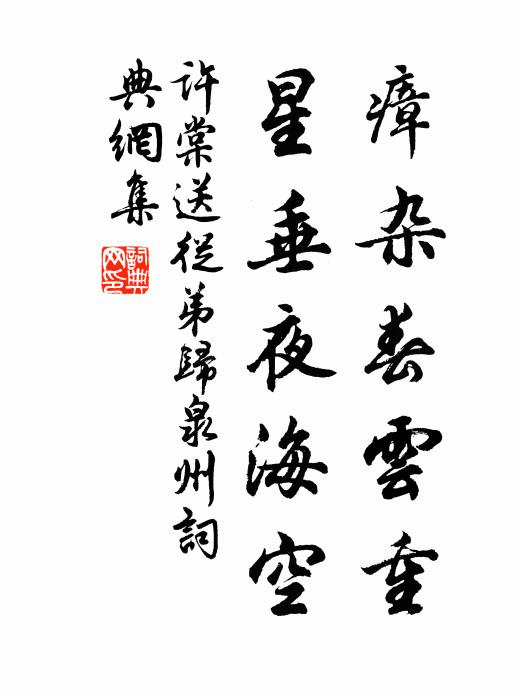 瘴杂春雲重
星垂夜海空
許棠送從弟歸泉州詞
典網集
詞典
网印